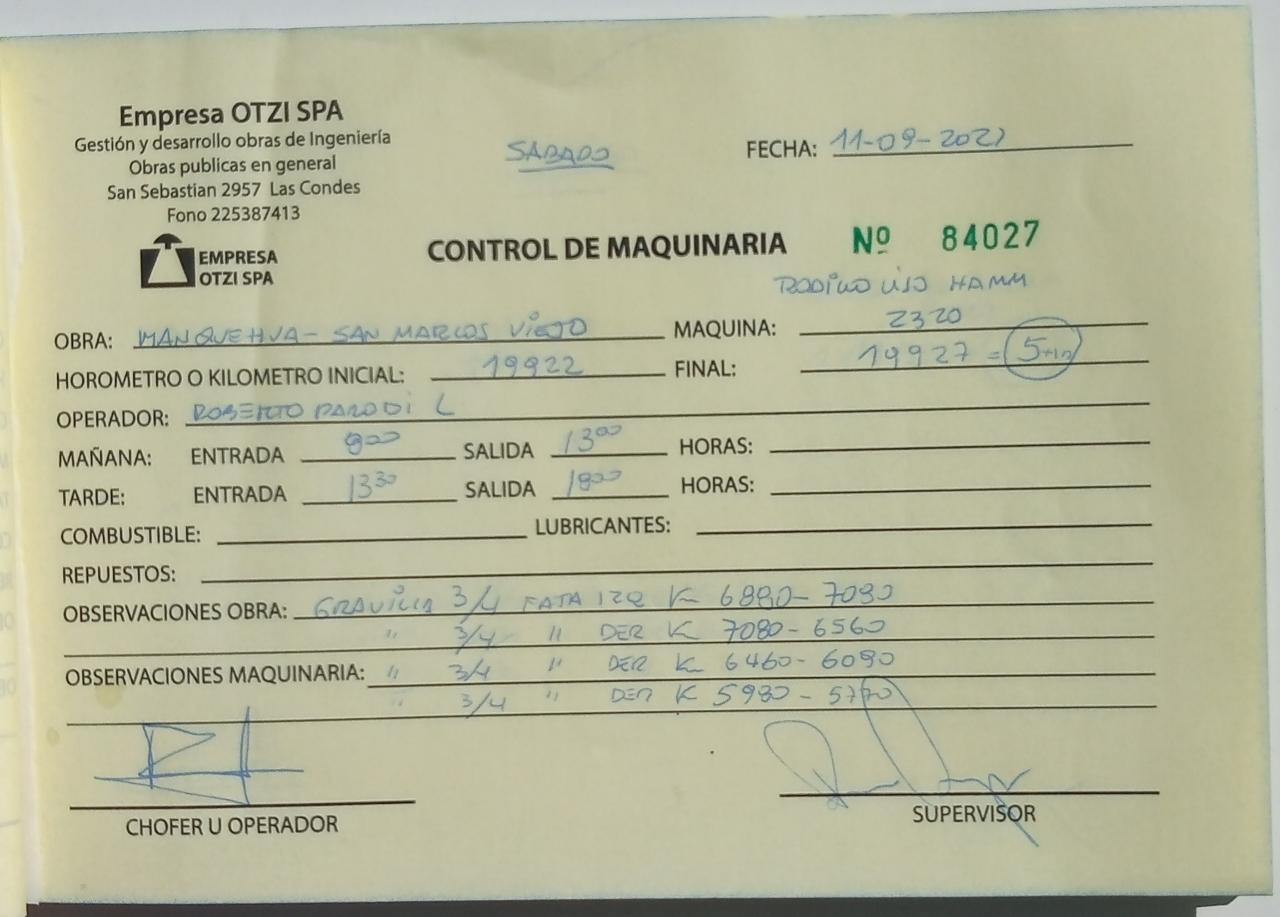 Empresa OTZI SPA
Gestión y desarrollo obras de Ingeniería
Obras publicas en general
San Sebastian 2957 Las Condes
Fono 225387413
EMPRESA
OTZI SPA
SABADO
FECHA: 11-09-2021
CONTROL DE MAQUINARIA Nº 84027
RODILLO LISO HAMM
OBRA: MANQUEHUA - SAN MARCOS VIEJO MAQUINA: 2320
HOROMETRO O KILOMETRO INICIAL: 19922 FINAL: 19927 = 5
OPERADOR: ROBERTO PARODI L
MAÑANA: ENTRADA 800 SALIDA 1300 HORAS:
TARDE: ENTRADA 1330 SALIDA 1800 HORAS:
COMBUSTIBLE: LUBRICANTES:
REPUESTOS:
OBSERVACIONES OBRA: GRAVILLA 3/4 IZQ K 6880-7080
" 3/4 " DER K 7080-6560
OBSERVACIONES MAQUINARIA: " 3/4 " DER K 6460-6080
" 3/4 " DER K 5980-5770
CHOFER U OPERADOR
SUPERVISOR